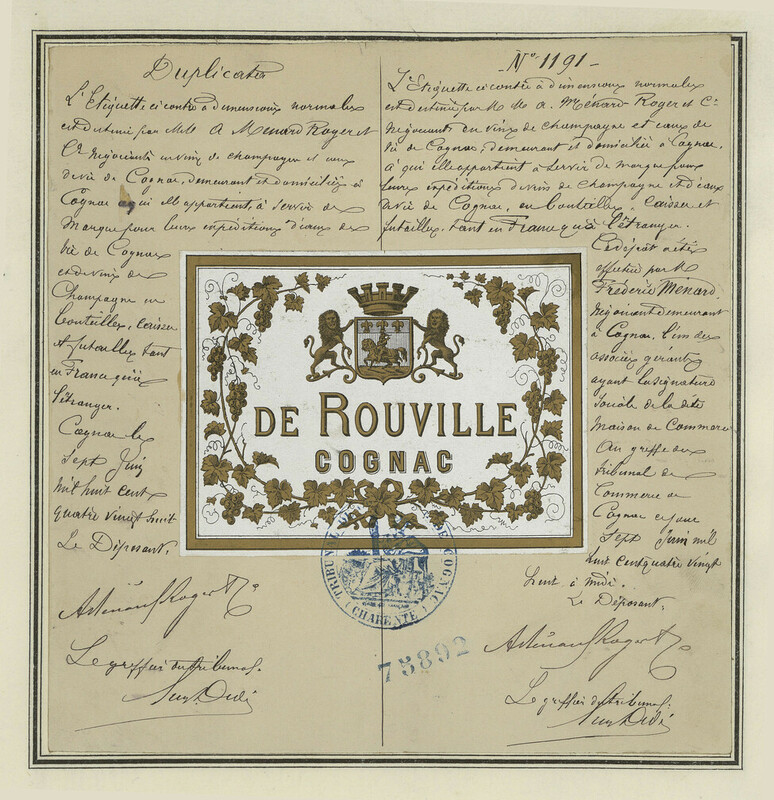 Duplicata
L'Etiquette ci contre à dimensions normales
est destiné par MMs A Menard Roger et
Cie négociants en vins de champagne et eaux
de vie de Cognac, demeurant et domiciliés à
Cognac a qui elle appartient, à servir de
Marque pour leurs expéditions d'eaux de
vie de Cognac
et de vins de
Champagne en
bouteilles, caisses
et futailles tant
en France qu'à
l'étranger.
Cognac le
Sept Juin
mil huit cent
quatre vingt huit
Le Déposant,
A Menard Roger & Co
Le greffier du tribunal.
No 1191 -
L'Etiquette ci contre à dimensions normales
est destiné par M Ms A. Menard Roger et Cie
Négociants en vins de champagne et eaux de
vie de Cognac, demeurant et domiciliés à Cognac,
à qui elle appartient à servir de marque pour
leurs expéditions de vins de Champagne et d'eaux
de vie de Cognac, en bouteilles, caisses et
futailles, tant en France qu'à l'étranger.
Ce dépôt a été
effectué par M
Frédéric Menard
Négociant demeurant
à Cognac, l'un des
associés gérants
ayant la signature
sociale de la dite
Maison de Commerce
Au greffe du
tribunal de
Commerce de
Cognac ce jour
Sept Juin mil
huit cent quatre vingt
huit à midi.
Le Déposant,
A Menard Roger & Co
Le greffier du tribunal.
DE ROUVILLE
COGNAC
TRIBUNAL DE COGNAC
(CHARENTE)
75892